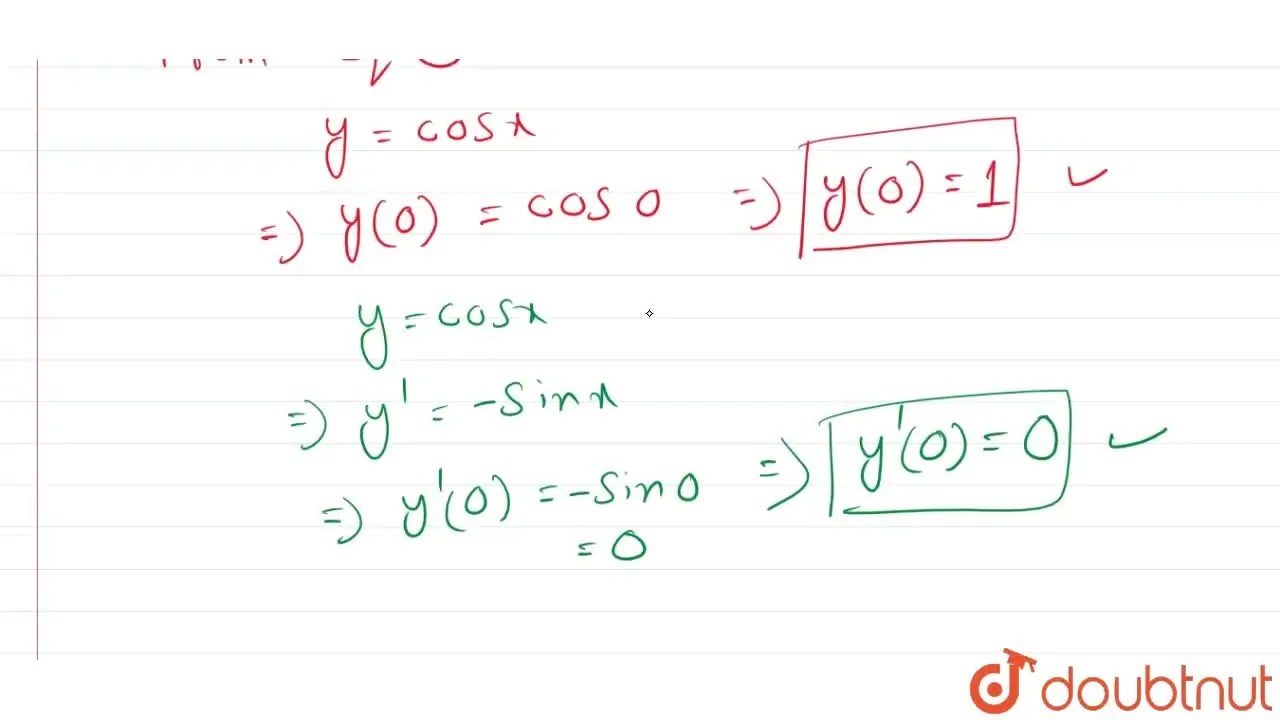 y = cosx
=) y(0) = cos 0 =) y(0) = 1 ✓
y = cosx
=) y' = -sinx
=) y'(0) = -sin0 =) y'(0) = 0 ✓
= 0
doubtnut